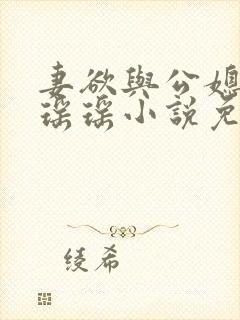 妻欲與公媳
瑶瑶小說免
绫希